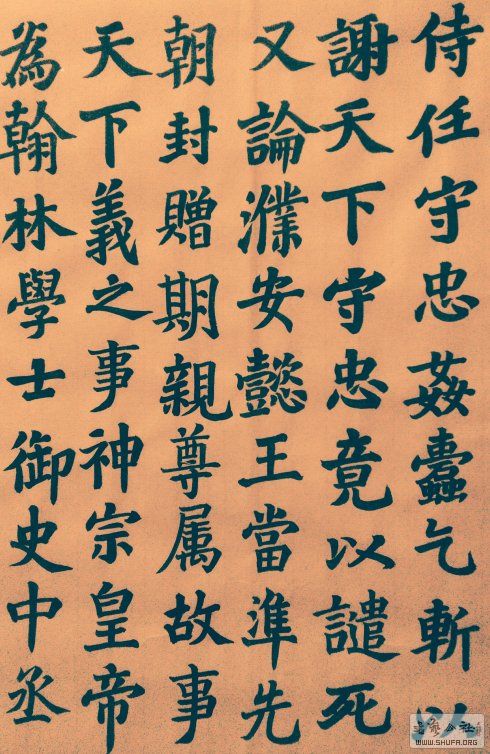 侍任守忠姦蠹乞斬以
謝天下守忠竟以譴死
又論濮安懿王當準先
朝封贈期親尊属故事
天下義之事神宗皇帝
為翰林學士御史中丞
WWW.SHUFA.ORG